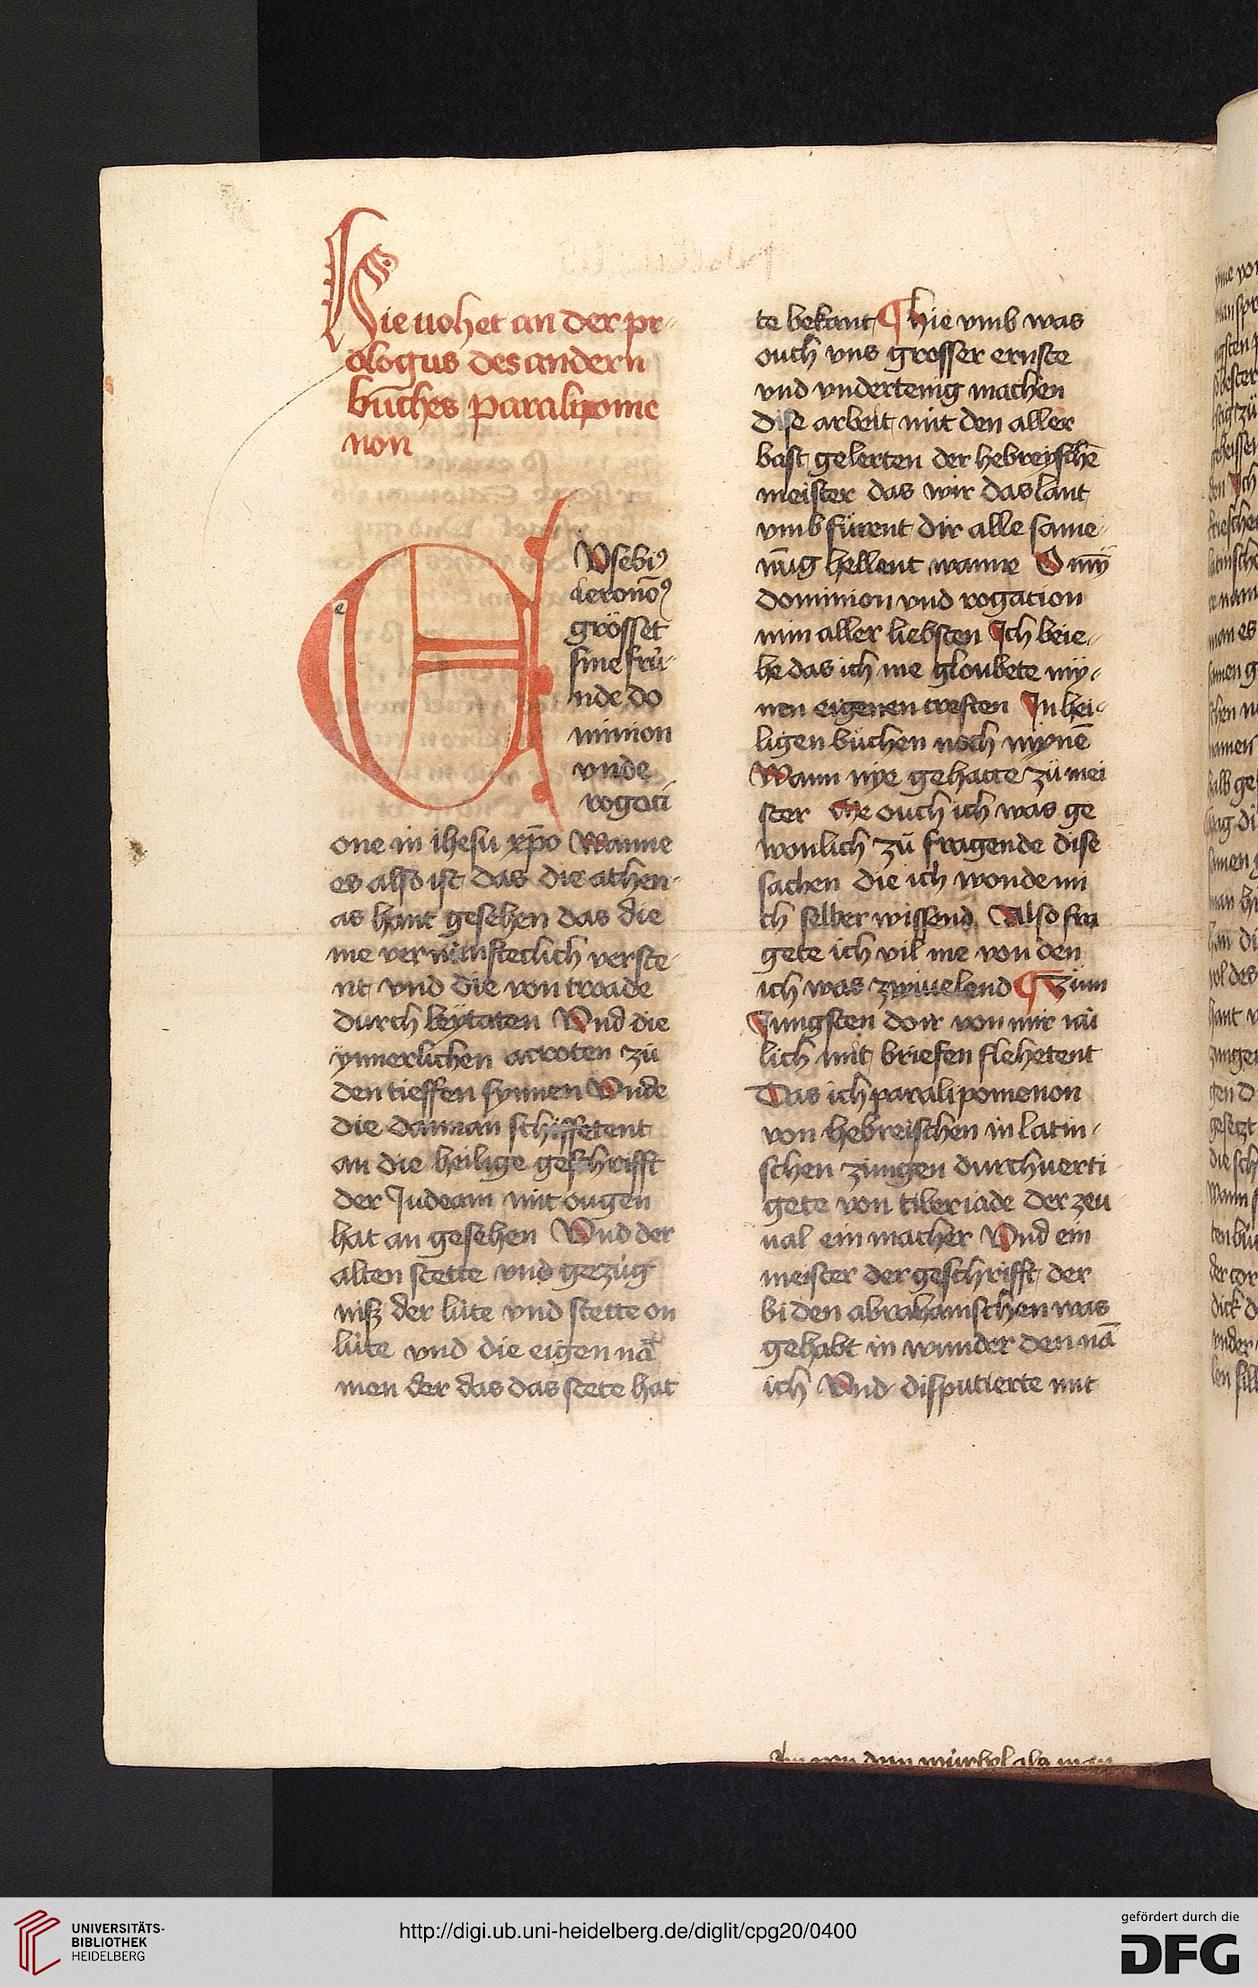 Hie uohet an der pr-
ologus des andern
bůches paralipome
non
EVsebiꝰ
ieronõꝰ
grösset
sine frü-
nde do
minion
vnde
rogaci
one in ihesu xp̄o Wanne
es also ist das die athen-
as hant gesehen das die
me vernünfteclich verste-
nt vnd die von troade
durch beÿtaten Vnd die
ynnerlichen acroten zů
den tieffen synnen Vnde
die daman schiffetent
an die heilige geschrifft
der Judeam mit ougen
hat an gesehen Vnd der
alten stette vnd gezüg
nisz der lüte vnd stette on
lüte vnd die eigen nā
men der das das stete hat
te bekant ¶ hie vmb was
ouch vns grosser ernste
vnd vndertenig machen
dise arbeit mit den aller
bast gelerten der hebreyschē
meister das wir das lant
vmb fürent dir alle same-
nūg hellent wanne O mÿ
dominion vnd rogacion
min aller liebsten Ich beie-
he das ich nie gloubete mÿ-
nen eigenen creften In hei-
ligen büchen noch mynē
Wann nÿe gehatte zů mei
ster Me ouch ich was ge
wonlich zů fragende dise
sachen die ich wonde mi
ch selber wissend Also fra
gete ich vil me von den
ich was zwiuelend ¶ Zům
Jungsten do ir von mir nü
lich mit briefen flehetent
Das ich paralipomenon
von hebreischen in latin-
schen zungen durchuerti
gete von tiberiade der zeu
ual ein macher Vnd ein
meister der geschrifft der
bi den abrahamschen was
gehabt in wunder den nā
ich Vnd disputierte mit
UNIVERSITÄTS-
BIBLIOTHEK
HEIDELBERG
http://digi.ub.uni-heidelberg.de/diglit/cpg20/0400
gefördert durch die
DFG